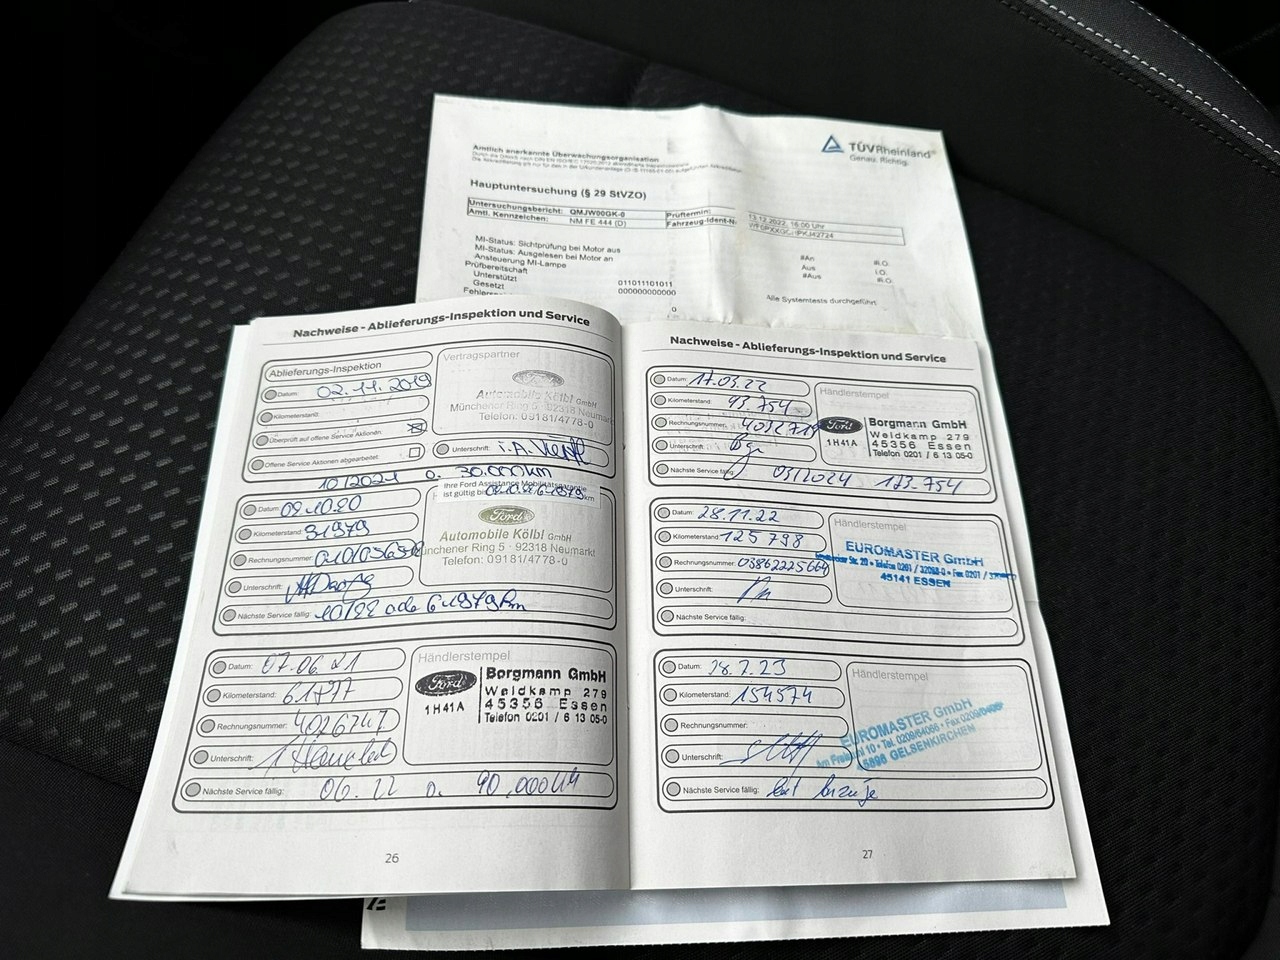 TÜVRheinland®
Genau. Richtig.
Amtlich anerkannte Überwachungsorganisation
Hauptuntersuchung (§ 29 StVZO)
Untersuchungsbericht: QMJW00GK-0
Prüftermin: 13.12.2022, 16:00 Uhr
Amtl. Kennzeichen: NM FE 444 (D)
Fahrzeug-Ident-N
MI-Status: Sichtprüfung bei Motor aus #An #i.O.
MI-Status: Ausgelesen bei Motor an Aus i.O.
Ansteuerung MI-Lampe #Aus #i.O.
Prüfbereitschaft
Unterstützt 011011101011
Gesetzt 000000000000
Alle Systemtests durchgeführt
0
Nachweise - Ablieferungs-Inspektion und Service
Ablieferungs-Inspektion
Datum: 02.11.2019
Kilometerstand:
Überprüft auf offene Service Aktionen.
Offene Service Aktionen abgearbeitet.
Vertragspartner
Automobile Kölbl GmbH
Münchener Ring 5 · 92318 Neumarkt
Telefon: 09181/4778-0
Unterschrift: i.A.
10/2021 o. 30.000km
Ihre Ford Assistance Mobilitätsgarantie
ist gültig bis km
Datum: 09.10.20
Kilometerstand: 31979
Rechnungsnummer:
Unterschrift:
Nächste Service fällig: 10/22 oda 61979km
Ford
Automobile Kölbl GmbH
Münchener Ring 5 · 92318 Neumarkt
Telefon: 09181/4778-0
Datum: 07.06.21
Kilometerstand: 61877
Rechnungsnummer: 4026747
Unterschrift:
Nächste Service fällig: 06.22 o. 90.000
Händlerstempel
Ford
1H41A
Borgmann GmbH
Weldkamp 279
45356 Essen
Telefon 0201 / 6 13 05-0
26
Nachweise - Ablieferungs-Inspektion und Service
Datum: 17.03.22
Kilometerstand: 93.754
Rechnungsnummer: 4032719
Unterschrift:
Nächste Service fällig: 03/2024 123.754
Händlerstempel
Ford
1H41A
Borgmann GmbH
Weldkamp 279
45356 Essen
Telefon 0201 / 6 13 05-0
Datum: 28.11.22
Kilometerstand: 125 798
Rechnungsnummer: 03862225664
Unterschrift:
Nächste Service fällig:
Händlerstempel
EUROMASTER GmbH
45141 ESSEN
Datum: 28.7.23
Kilometerstand: 154574
Rechnungsnummer:
Unterschrift:
Nächste Service fällig: laut Anzeige
Händlerstempel
EUROMASTER GmbH
45896 GELSENKIRCHEN
27